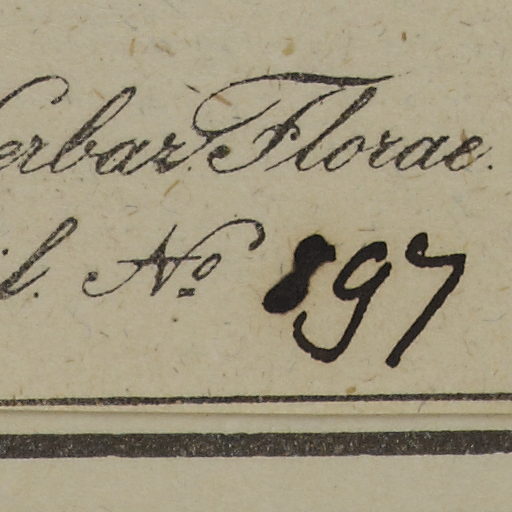 erbar. Florae.
il. No 897